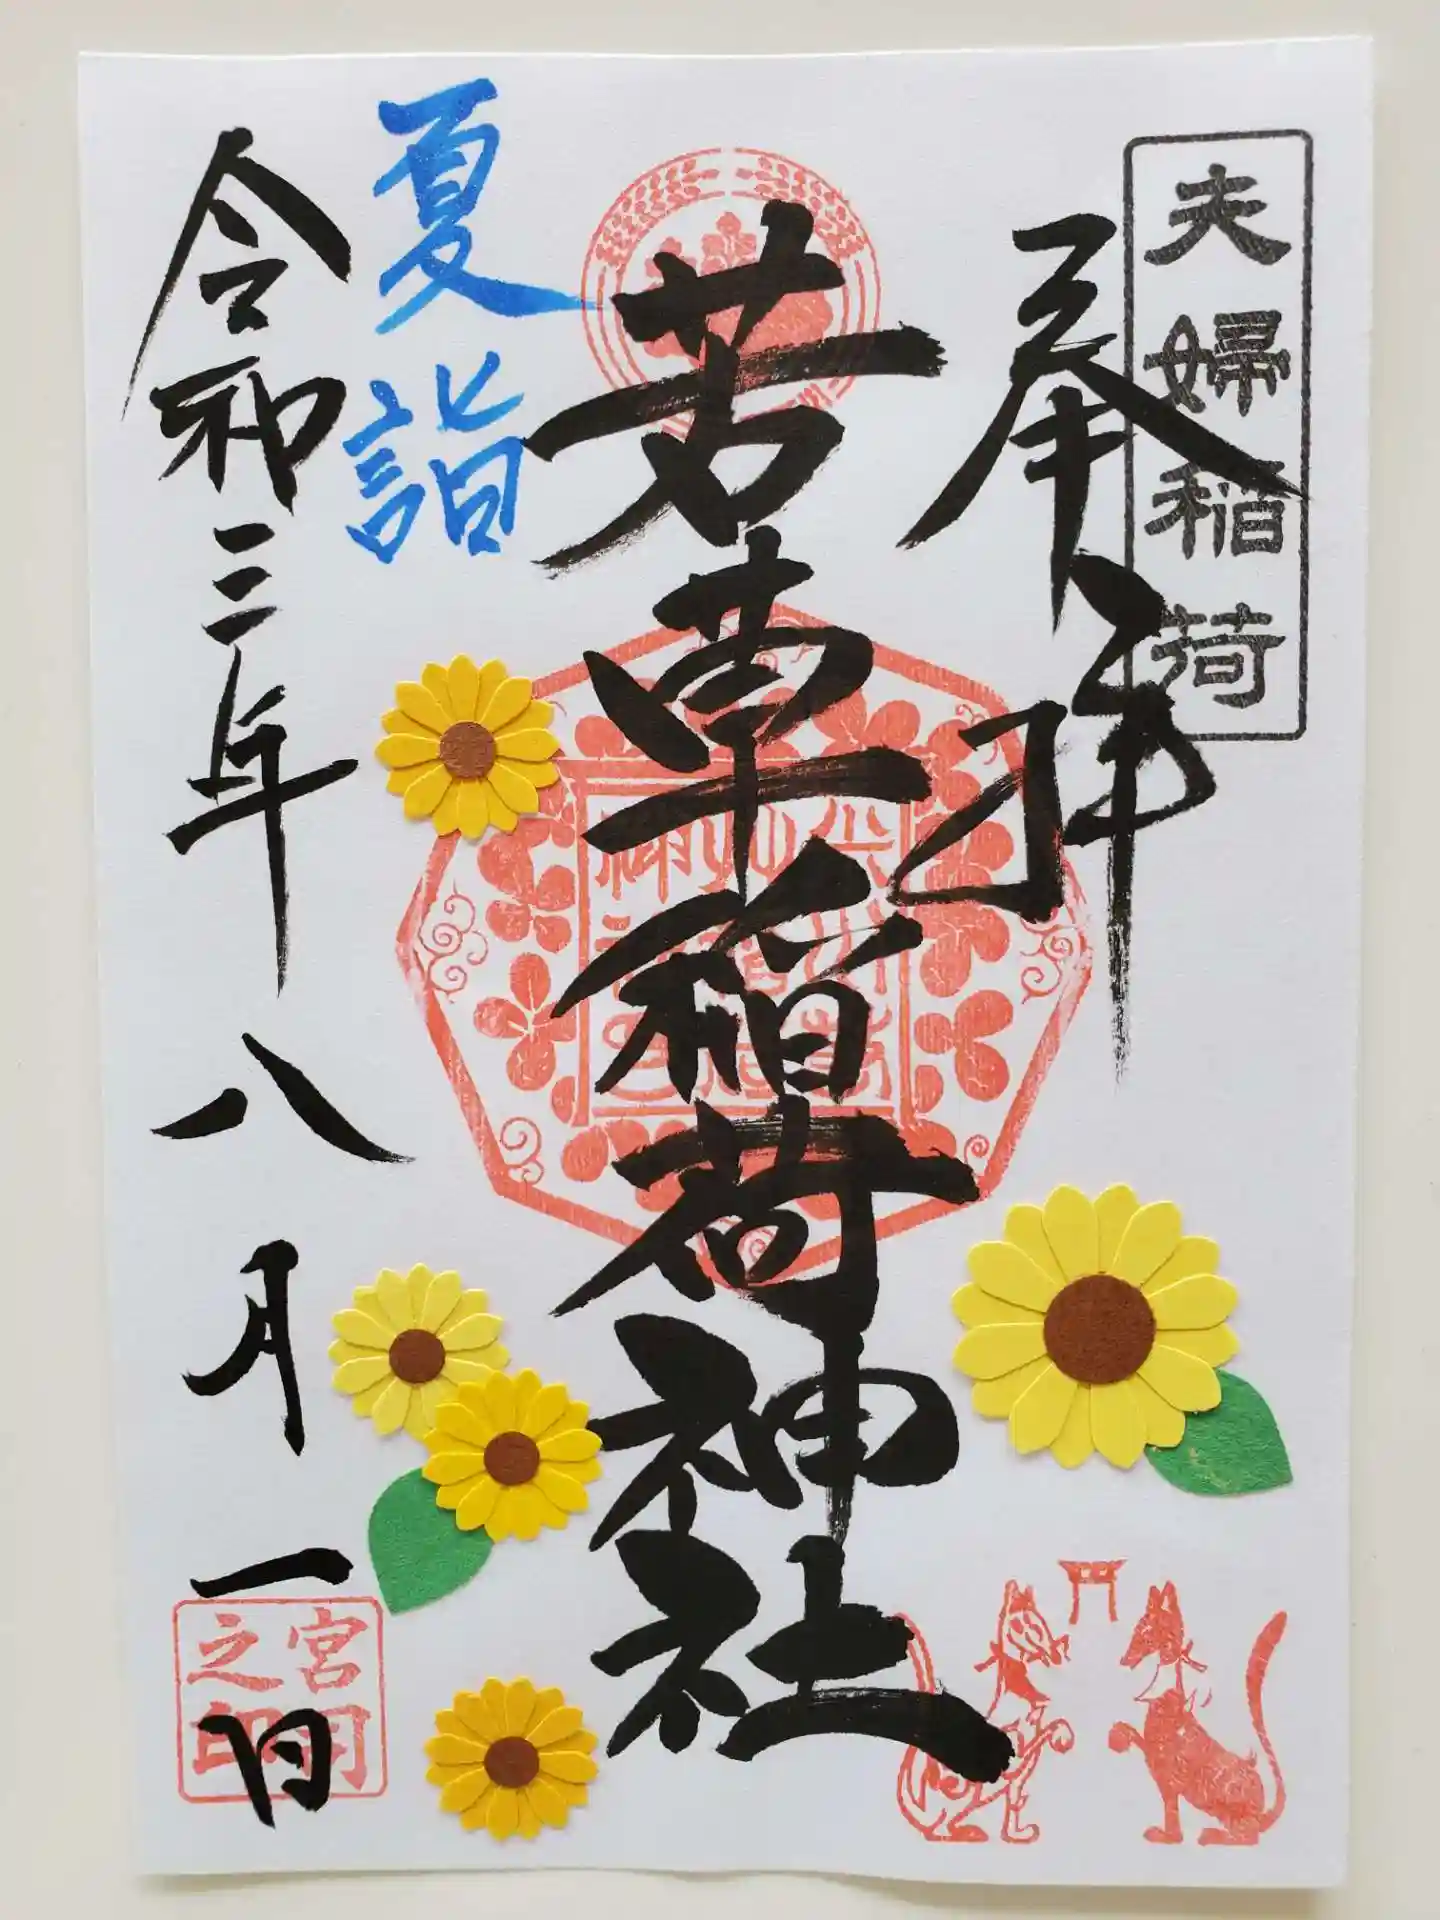 夫婦稲荷
奉拝
若草稲荷神社
夏詣
令和三年八月一日
宮之印